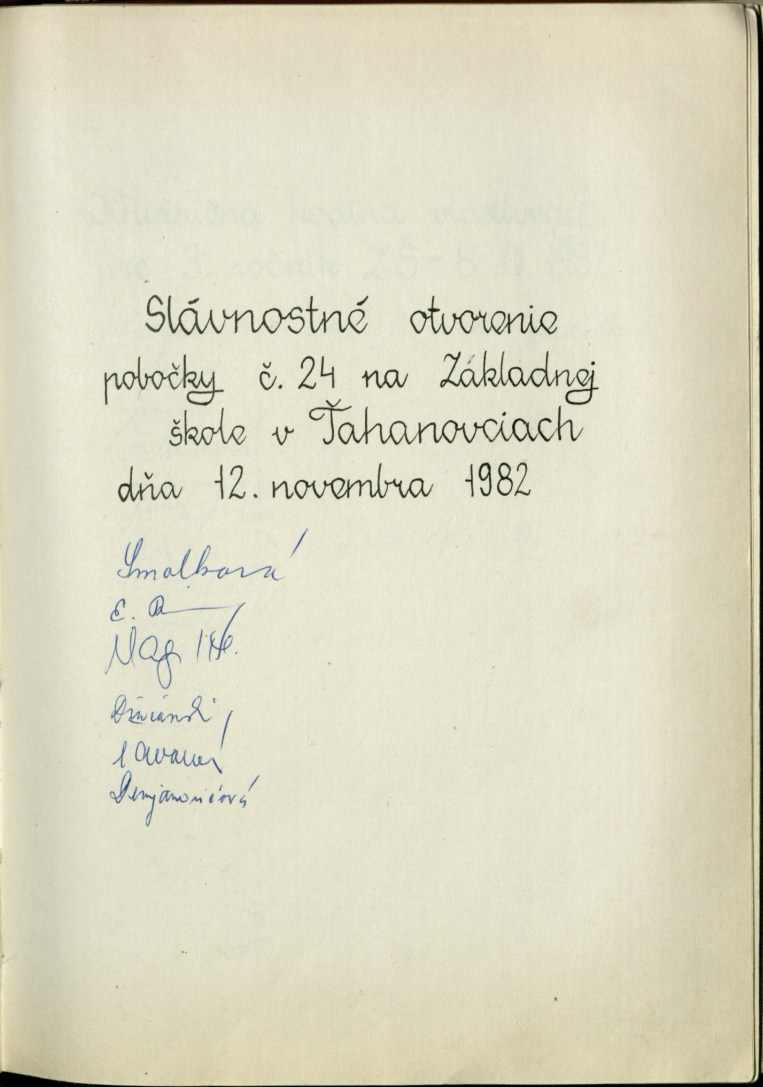 Slávnostné otvorenie
pobočky č. 24 na Základnej
škole v Ťahanovciach
dňa 12. novembra 1982
Smolková
E.
Demjanovičová